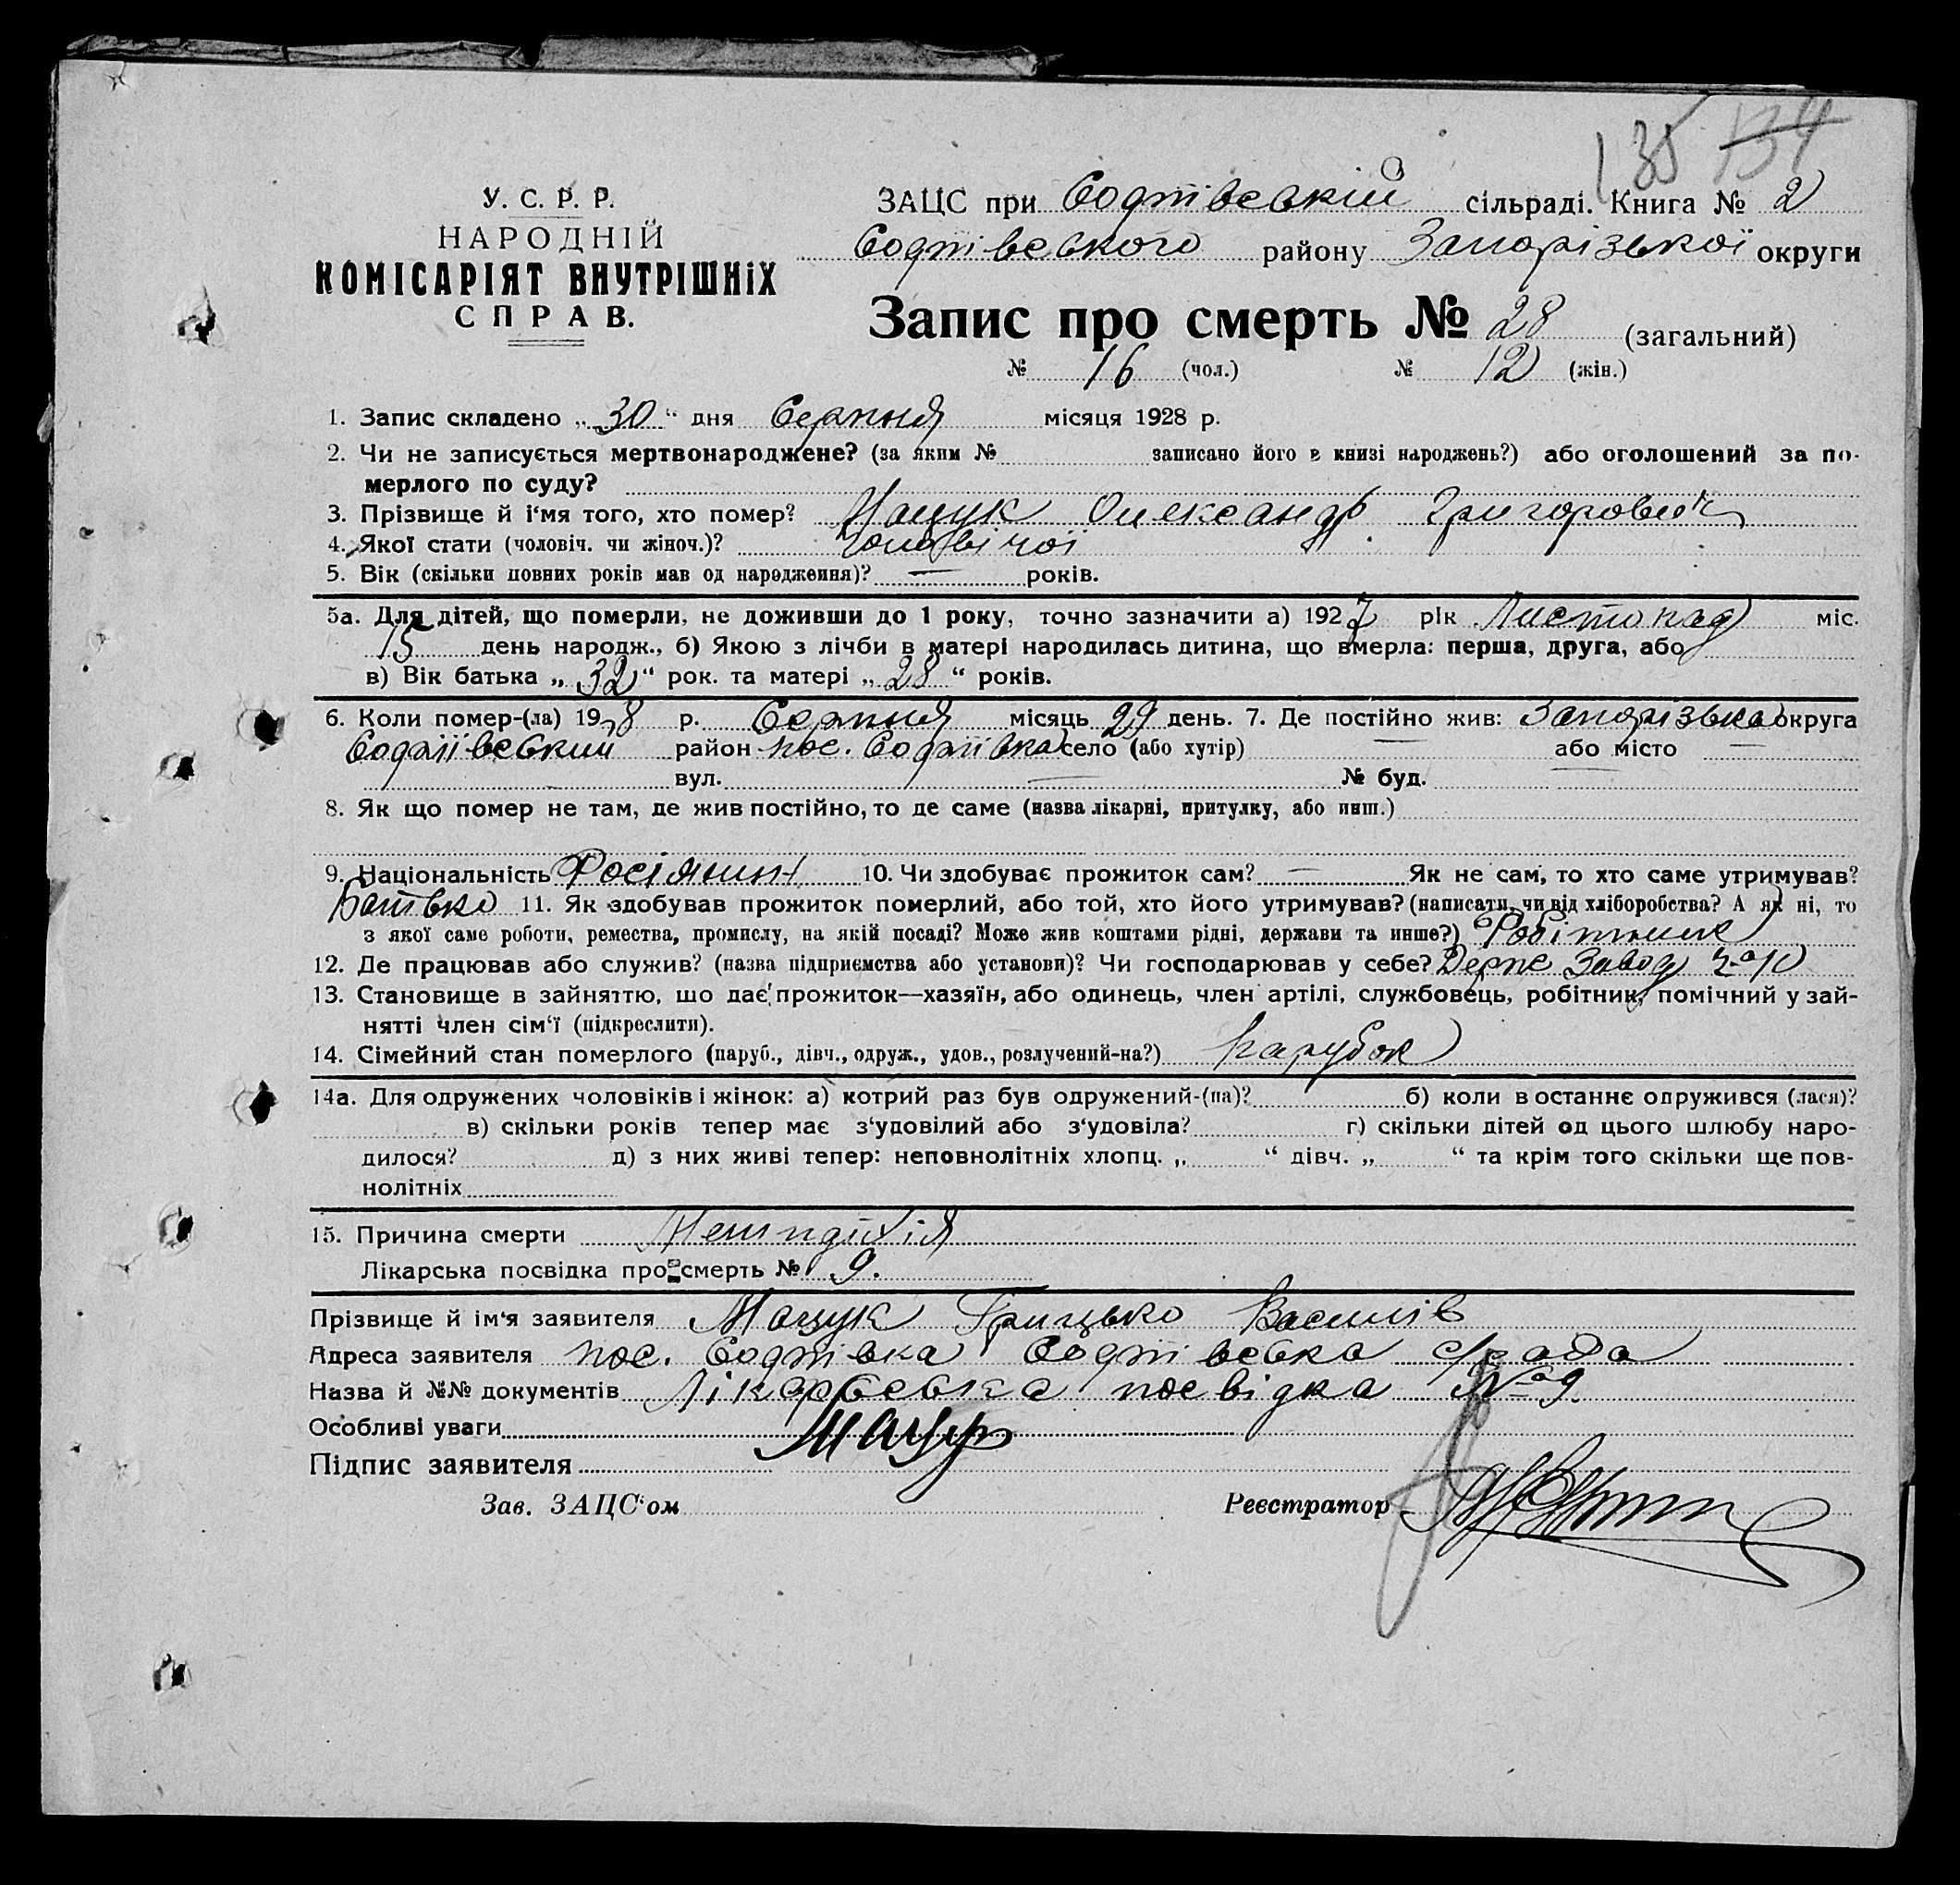 135 134
У. С. Р. Р.
НАРОДНІЙ
КОМІСАРІЯТ ВНУТРІШНІХ
СПРАВ.
ЗАЦС при Софіївській сільраді. Книга № 2
Софіївського району Запорізької округи
Запис про смерть № 28 (загальний)
№ 16 (чол.) № 12 (жін.)
1. Запис складено „30" дня Серпня місяця 1928 р.
2. Чи не записується мертвонароджене? (за яким № записано його в книзі народжень?) або оголошений за по-
мерлого по суду?
3. Прізвище й і'мя того, хто помер? Мацук Олександр Григорович
4. Якої стати (чоловіч. чи жіноч.)? чоловічої
5. Вік (скільки повних років мав од народження)? — років.
5а. Для дітей, що померли, не доживши до 1 року, точно зазначити а) 1927 рік Листопад міс.
15 день народж., б) Якою з лічби в матері народилась дитина, що вмерла: перша, друга, або
в) Вік батька „32" рок. та матері „28" років.
6. Коли помер-(ла) 1928 р. Серпня місяць 29 день. 7. Де постійно жив: Запорізька округа
Софіївський район пос. Софіївка село (або хутір) — або місто —
вул. — № буд. —
8. Як що помер не там, де жив постійно, то де саме (назва лікарні, притулку, або инш.)
9. Національність Росіянин 10. Чи здобуває прожиток сам? — Як не сам, то хто саме утримував?
Батько 11. Як здобував прожиток померлий, або той, хто його утримував? (написати, чи від хліборобства? А як ні, то
з якої саме роботи, ремества, промислу, на якій посаді? Може жив коштами рідні, держави та инше?) Робітник
12. Де працював або служив? (назва підприємства або установи)? Чи господарював у себе? Держ Завод
13. Становище в зайняттю, шо дає прожиток—хазяїн, або одинець, член артілі, службовець, робітник, помічний у зай-
нятті член сім'ї (підкреслити).
14. Сімейний стан померлого (паруб., дівч., одруж., удов., розлучений-на?) парубок
14а. Для одружених чоловіків і жінок: а) котрий раз був одружений-(на)? б) коли в останнє одружився (лася)?
в) скільки років тепер має з'удовілий або з'удовіла? г) скільки дітей од цього шлюбу наро-
дилося? д) з них живі тепер: неповнолітніх хлопц. „ " дівч. „ " та крім того скільки ще пов-
нолітніх
15. Причина смерти
Лікарська посвідка про смерть № 9.
Прізвище й ім'я заявителя Мацук Грицько Василів
Адреса заявителя пос. Софіївка Софіївська с/рада
Назва й №№ документів Лікарська посвідка № 9
Особливі уваги
Підпис заявителя
Зав. ЗАЦС'ом Реєстратор